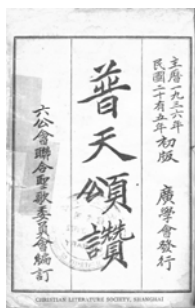 主曆一九三六年
民國二十有五年初版
廣學會發行
普天頌讚
六公會聯合聖歌委員會編訂
CHRISTIAN LITERATURE SOCIETY, SHANGHAI